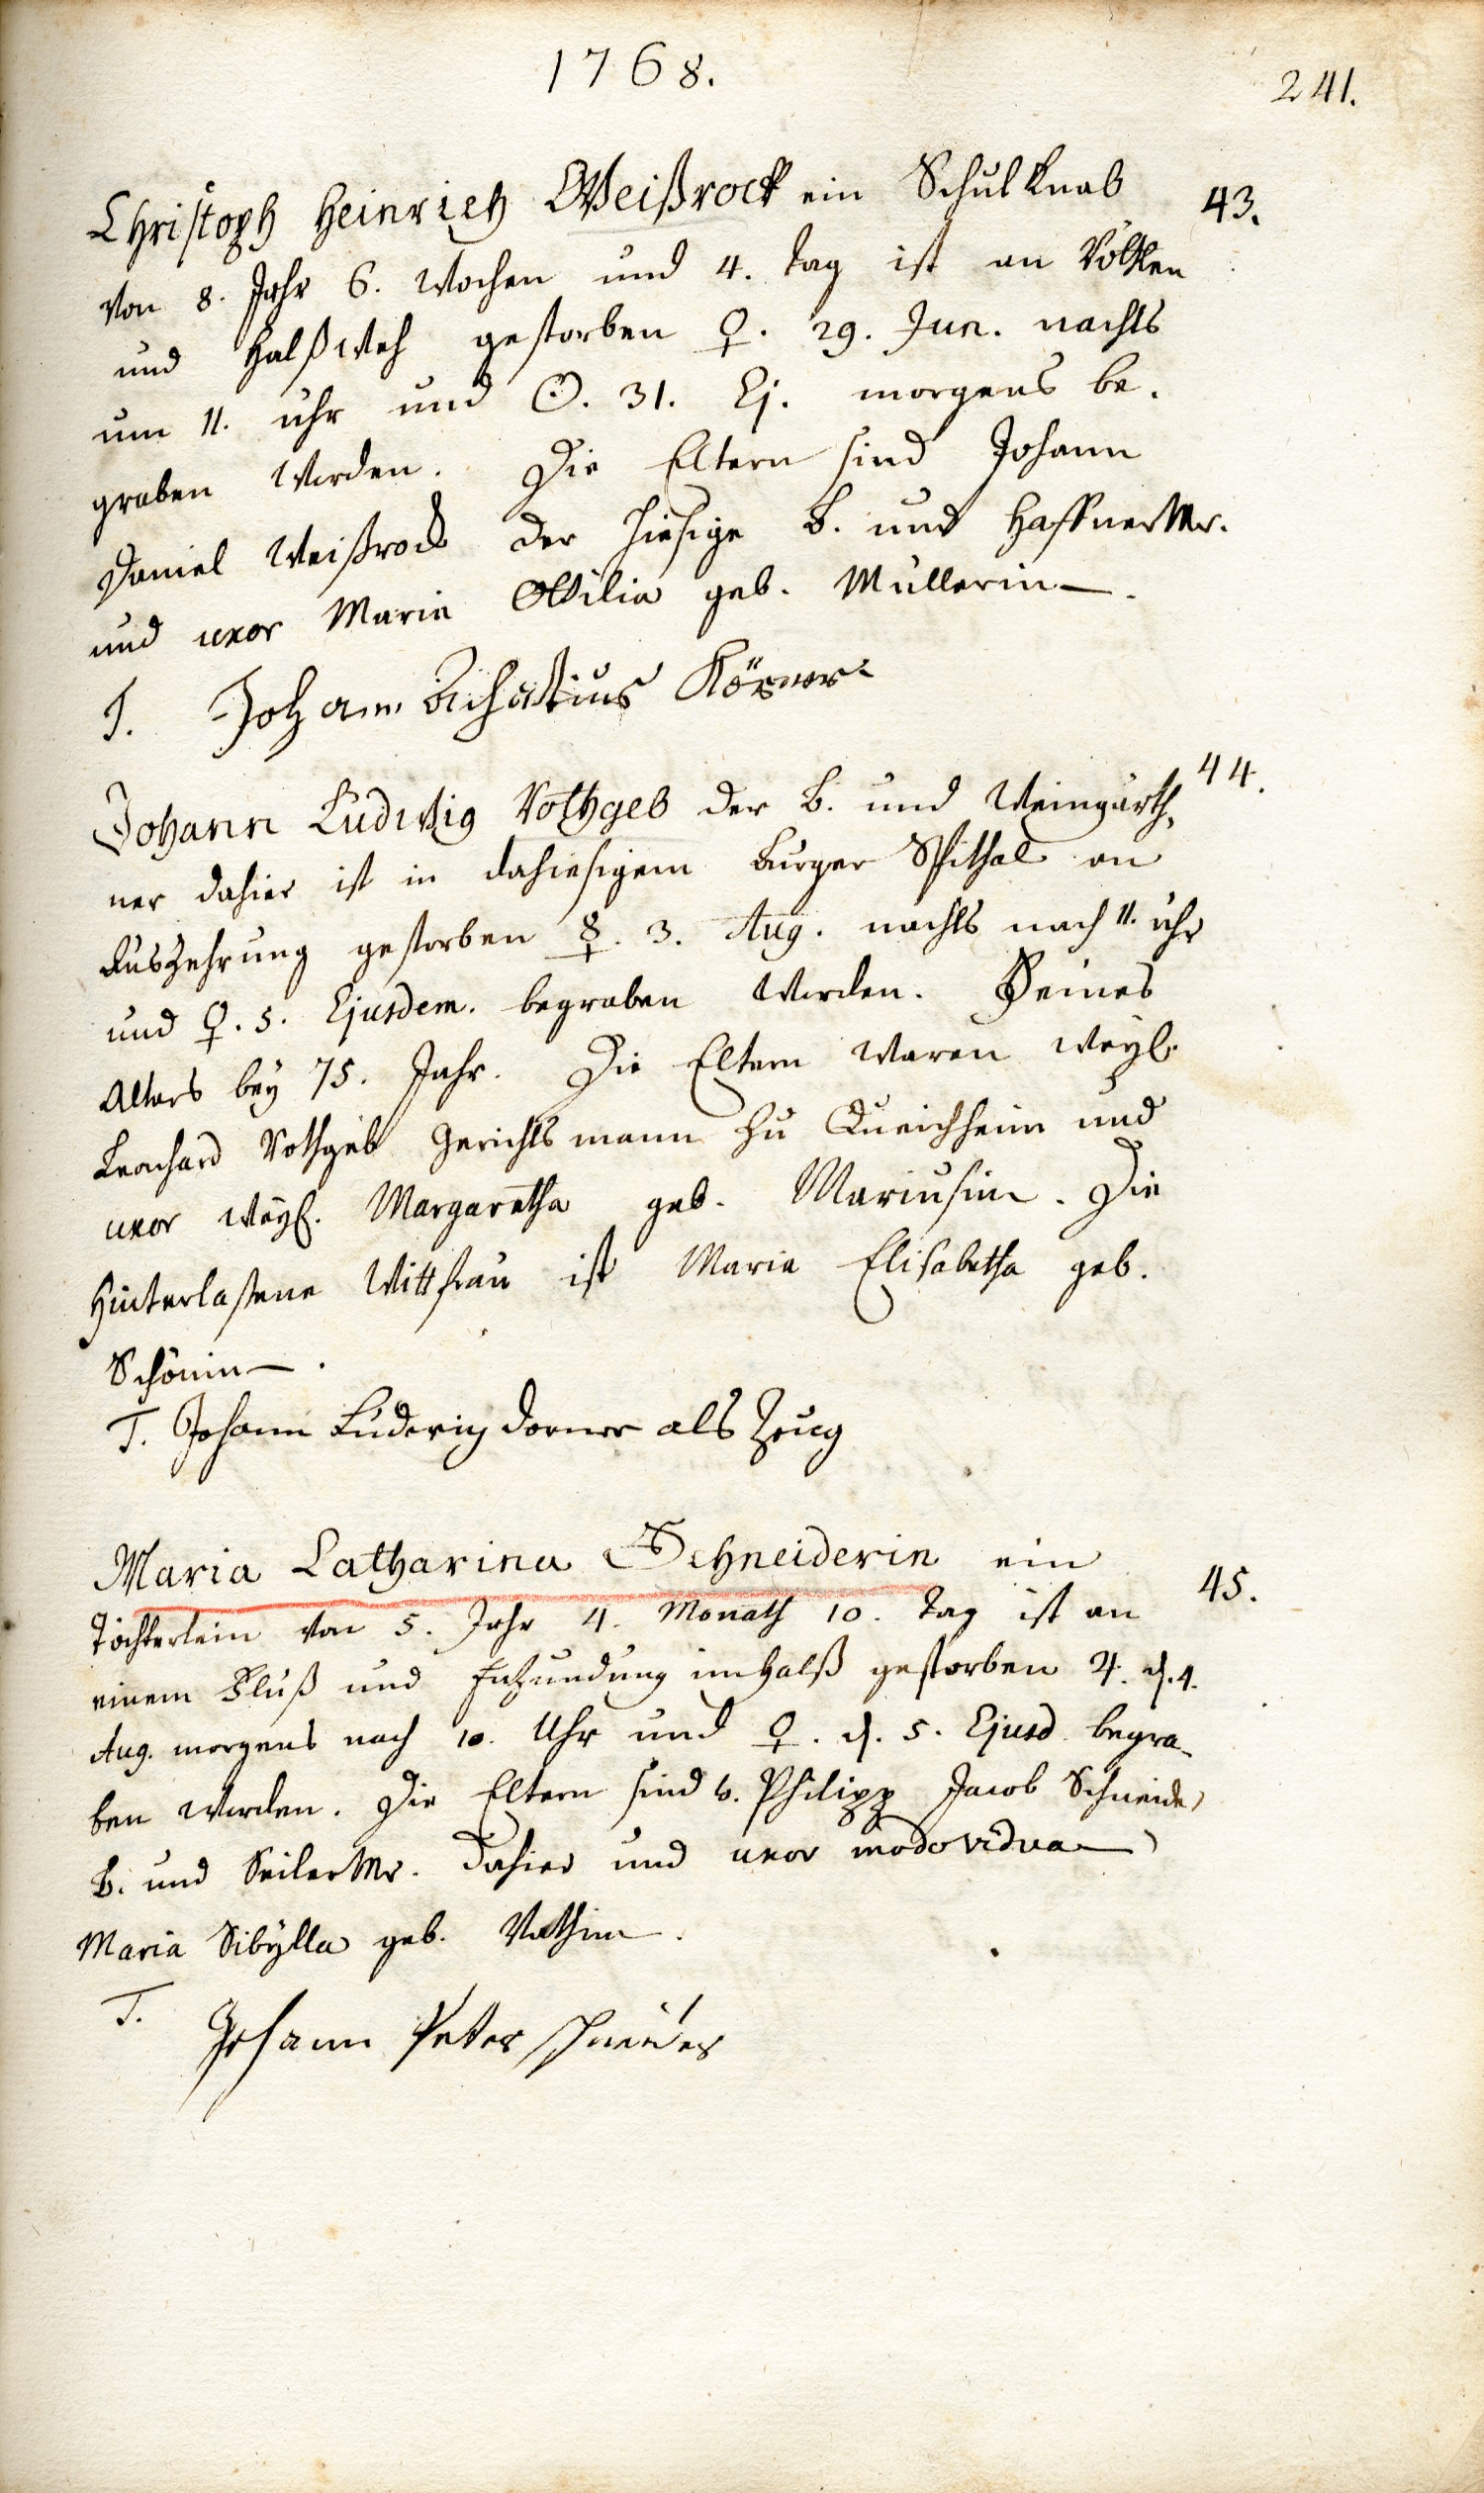 1768.
241.
Christoph Heinrich Weißrock ein Schulknab
43.
von 8. Jahr 6. Wochen und 4. Tag ist an Röthlen
und Halßweh gestorben ♀. 29. Jun. nachts
um 11. uhr und ☉. 31. Ej. morgens be.
graben worden. Die Eltern sind Johann
Daniel Weißrock der hiesige B. und HaffnerMr.
und uxor Maria Ottilia geb. Müllerin.
T. Johann Achatius Körner
44.
Johann Ludwig Vothgeb der B. und Weingärth,
ner dahier ist in dahiesigem Burger Spithal an
Auszehrung gestorben ☿. 3. Aug. nachts nach 11. uhr
und ♀. 5. Ejusdem. begraben worden. Seines
Alters bey 75. Jahr. Die Eltern waren weyl.
Leonhard Vothgeb Gerichtsmann zu Queichheim und
uxor weyl. Margaretha geb. Mariusin. Die
Hinterlaßene Wittfrau ist Maria Elisabetha geb.
Schönin.
T. Johann Ludwig Dorner als Zeug
Maria Catharina Schneiderin ein
45.
Töchterlein von 5. Jahr 4. Monath 10. Tag ist an
einem Fluß und Enzundung im Halß gestorben ♃. d. 4.
Aug. morgens nach 10. Uhr und ♀. d. 5. Ejusd. begra-
ben worden. Die Eltern sind Philipp Jacob Schneider
B. und SeilerMr. dahier und uxor modo vidua
Maria Sibylla geb.
T. Johann Peter schneider